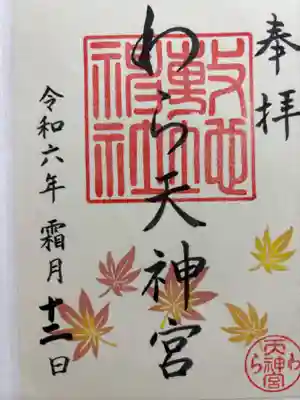 奉拝
わら天神宮
敷地神社
令和六年 霜月 十二日
わら天神宮